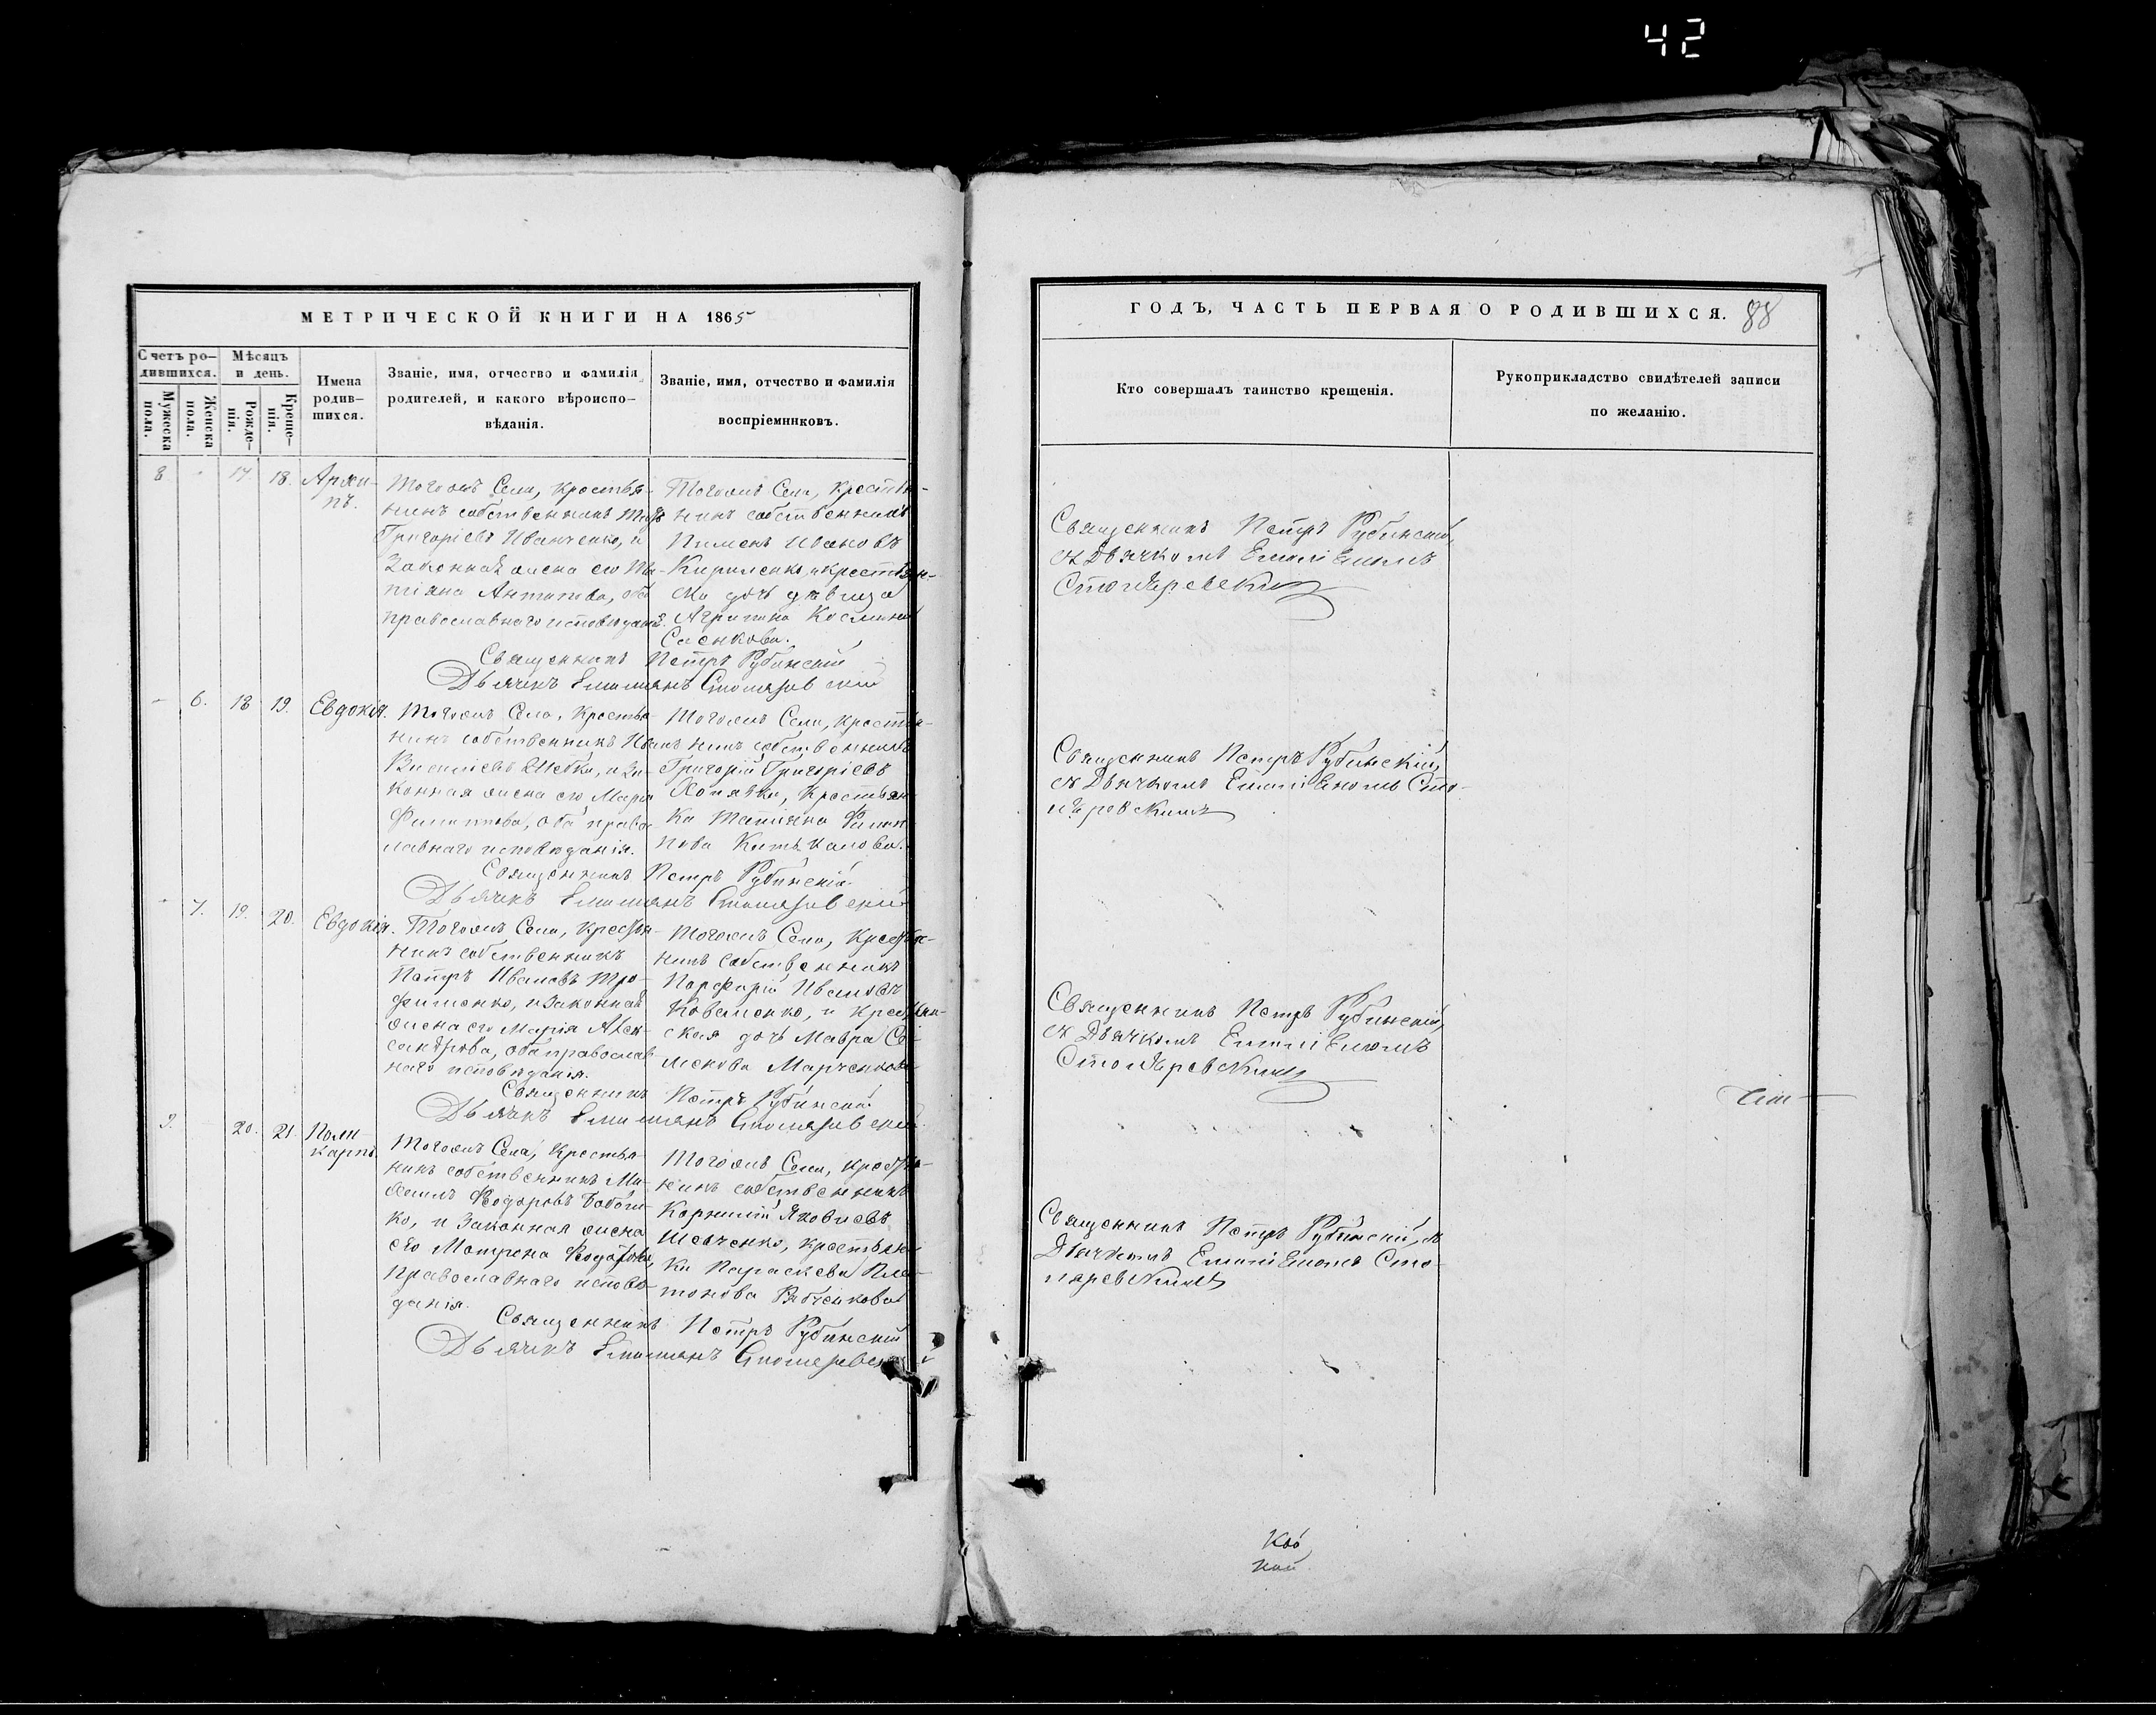 42
МЕТРИЧЕСКОЙ КНИГИ НА 1865
Счетъ ро-
дившихся.
Мужеска
пола.
Женска
пола.
Мѣсяцъ
и день.
Рожде-
нія.
Креще-
нія.
Имена
родив-
шихся.
Званіе, имя, отчество и фамилія
родителей, и какого вѣроиспо-
вѣданія.
Званіе, имя, отчество и фамилія
воспріемниковъ.
8 - 17 18. Архи-
пъ.
Тогожъ Села, крестья-
нинъ собственникъ
Григоріевъ Иванченко, и
Законная жена его Та-
тіана Антипова, оба
православнаго исповѣданія.
Тогожъ Села, крестья-
нинъ собственникъ
Пименъ Ивановъ
Кириленко, и крестьян-
ска дочь дѣвица
Агрипина Косьмина
Сасикова.
Священникъ Петръ Рубинскій
Дьячекъ Емиліанъ Столяревскій
- 6. 18 19. Евдокія.
Тогожъ Села, Крестья-
нинъ собственникъ Иванъ
Василіевъ и За-
конная жена его Марія
Филиппова, оба право-
славнаго исповѣданія.
Тогожъ Села, крестья-
нинъ собственникъ
Григорій Григоріевъ
Хопячка, Крестьян-
ка Татіана Филип-
пова
Священникъ Петръ Рубинскій
Дьячекъ Емиліанъ Столяревскій
- 7. 19. 20. Евдокія.
Тогожъ Села, крестья-
нинъ собственникъ
Петръ Ивановъ Тро-
фименко, и законная
жена его Марія Алек-
сандрова, оба православ-
наго исповѣданія.
Тогожъ Села, крестья-
нинъ собственникъ
Порфирій Ивановъ
Коваленко, и крестьян-
ская дочь Мавра Се-
менова Марченкова
Священникъ Петръ Рубинскій
Дьячекъ Емиліанъ Столяревскій
9. - 20. 21. Поли-
карпъ.
Тогожъ Села, крестья-
нинъ собственникъ Ми-
хаилъ Ѳедоровъ
ко, и Законная жена
его Матрона Ѳедотова,
православнаго исповѣ-
данія.
Тогожъ Села, крестья-
нинъ собственникъ
Корнилій Яковлевъ
Шевченко, крестьян-
ка Параскева Пла-
тонова Рябченкова
Священникъ Петръ Рубинскій
Дьячекъ Емиліанъ Столяревскій
ГОДЪ, ЧАСТЬ ПЕРВАЯ О РОДИВШИХСЯ. 88
Кто совершалъ таинство крещенія.
Рукоприкладство свидѣтелей записи
по желанію.
Священникъ Петръ Рубинскій,
съ Дьячкомъ Емиліаномъ
Столяревскимъ
Священникъ Петръ Рубинскій,
съ Дьячкомъ Емиліаномъ Сто-
ляревскимъ
Священникъ Петръ Рубинскій,
съ Дьячкомъ Емиліаномъ
Столяревскимъ
Священникъ Петръ Рубинскій, съ
Дьячкомъ Емиліаномъ Сто-
ляревскимъ